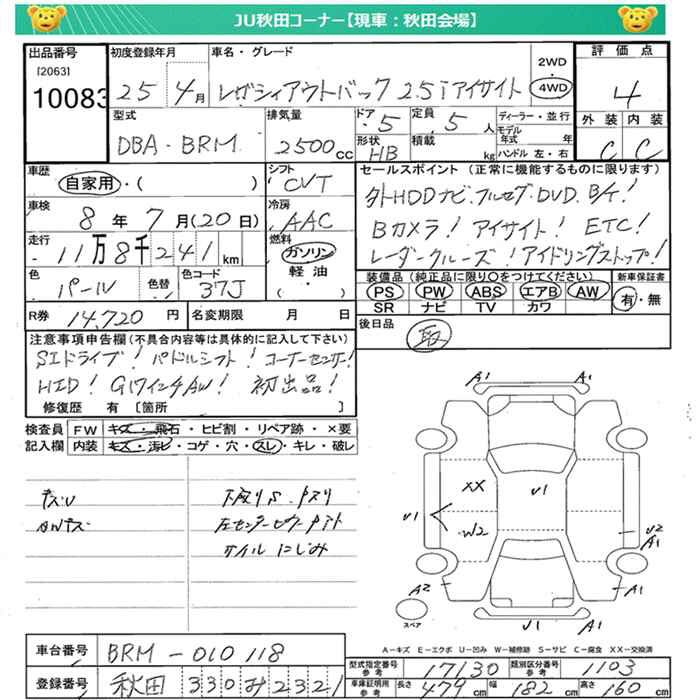 JU秋田コーナー【現車：秋田会場】
出品番号 初度登録年月 車名・グレード 2WD 4WD 評価点
[2063]
10083 25年 4月 レガシィアウトバック 2.5iアイサイト 4
型式 排気量 ドア 定員 ディーラー・並行 外装 内装
・5 ・5人 モデル年式 年
DBA・BRM 2500cc 形状 HB 積載 kg ハンドル 左・右 C C
車歴 シフト セールスポイント（正常に機能するものに限ります）
自家用・（ ） CVT 外HDDナビ、フルセグ・DVD、B/T！
車検 冷房
8年7月（20日） AAC Bカメラ！アイサイト！ETC！
走行 燃料
11万8千241km ガソリン レーダークルーズ！アイドリングストップ！
色 色替 色コード 軽油 装備品（純正品に限り○をつけてください） 新車保証書
パール 37J ・（ ） PS PW ABS エアB AW 有・無
SR ナビ TV カワ
R券 14,720円 名変期限 月 日 後日品 取
注意事項申告欄（不具合内容等は具体的に記入して下さい）
SIドライブ！パドルシフト！コーナーセンサー！
HID！ G17インチAW！初出品！
修復歴 有［箇所 ］
検査員 FW キズ・飛石・ヒビ割・リペア跡・×要
記入欄 内装 キズ・汚レ・コゲ・穴・スレ・キレ・破レ
キズU 下廻りS・Pスリ
AWキズ 左センターピラーPアト
タイルにじみ
A1 A1
XX U1
U1 W2 U2
A1
A2 A1
スペア U1 A1
A－キズ E－エクボ U－凹み W－補修跡 S－サビ C－腐食 XX－交換済
車台番号 BRM-010118
型式指定番号 参考 17130 類別区分番号 参考 1103
登録番号 秋田 330 み 2321
車庫証明用 参考 長さ 479cm 幅 182cm 高さ 160cm